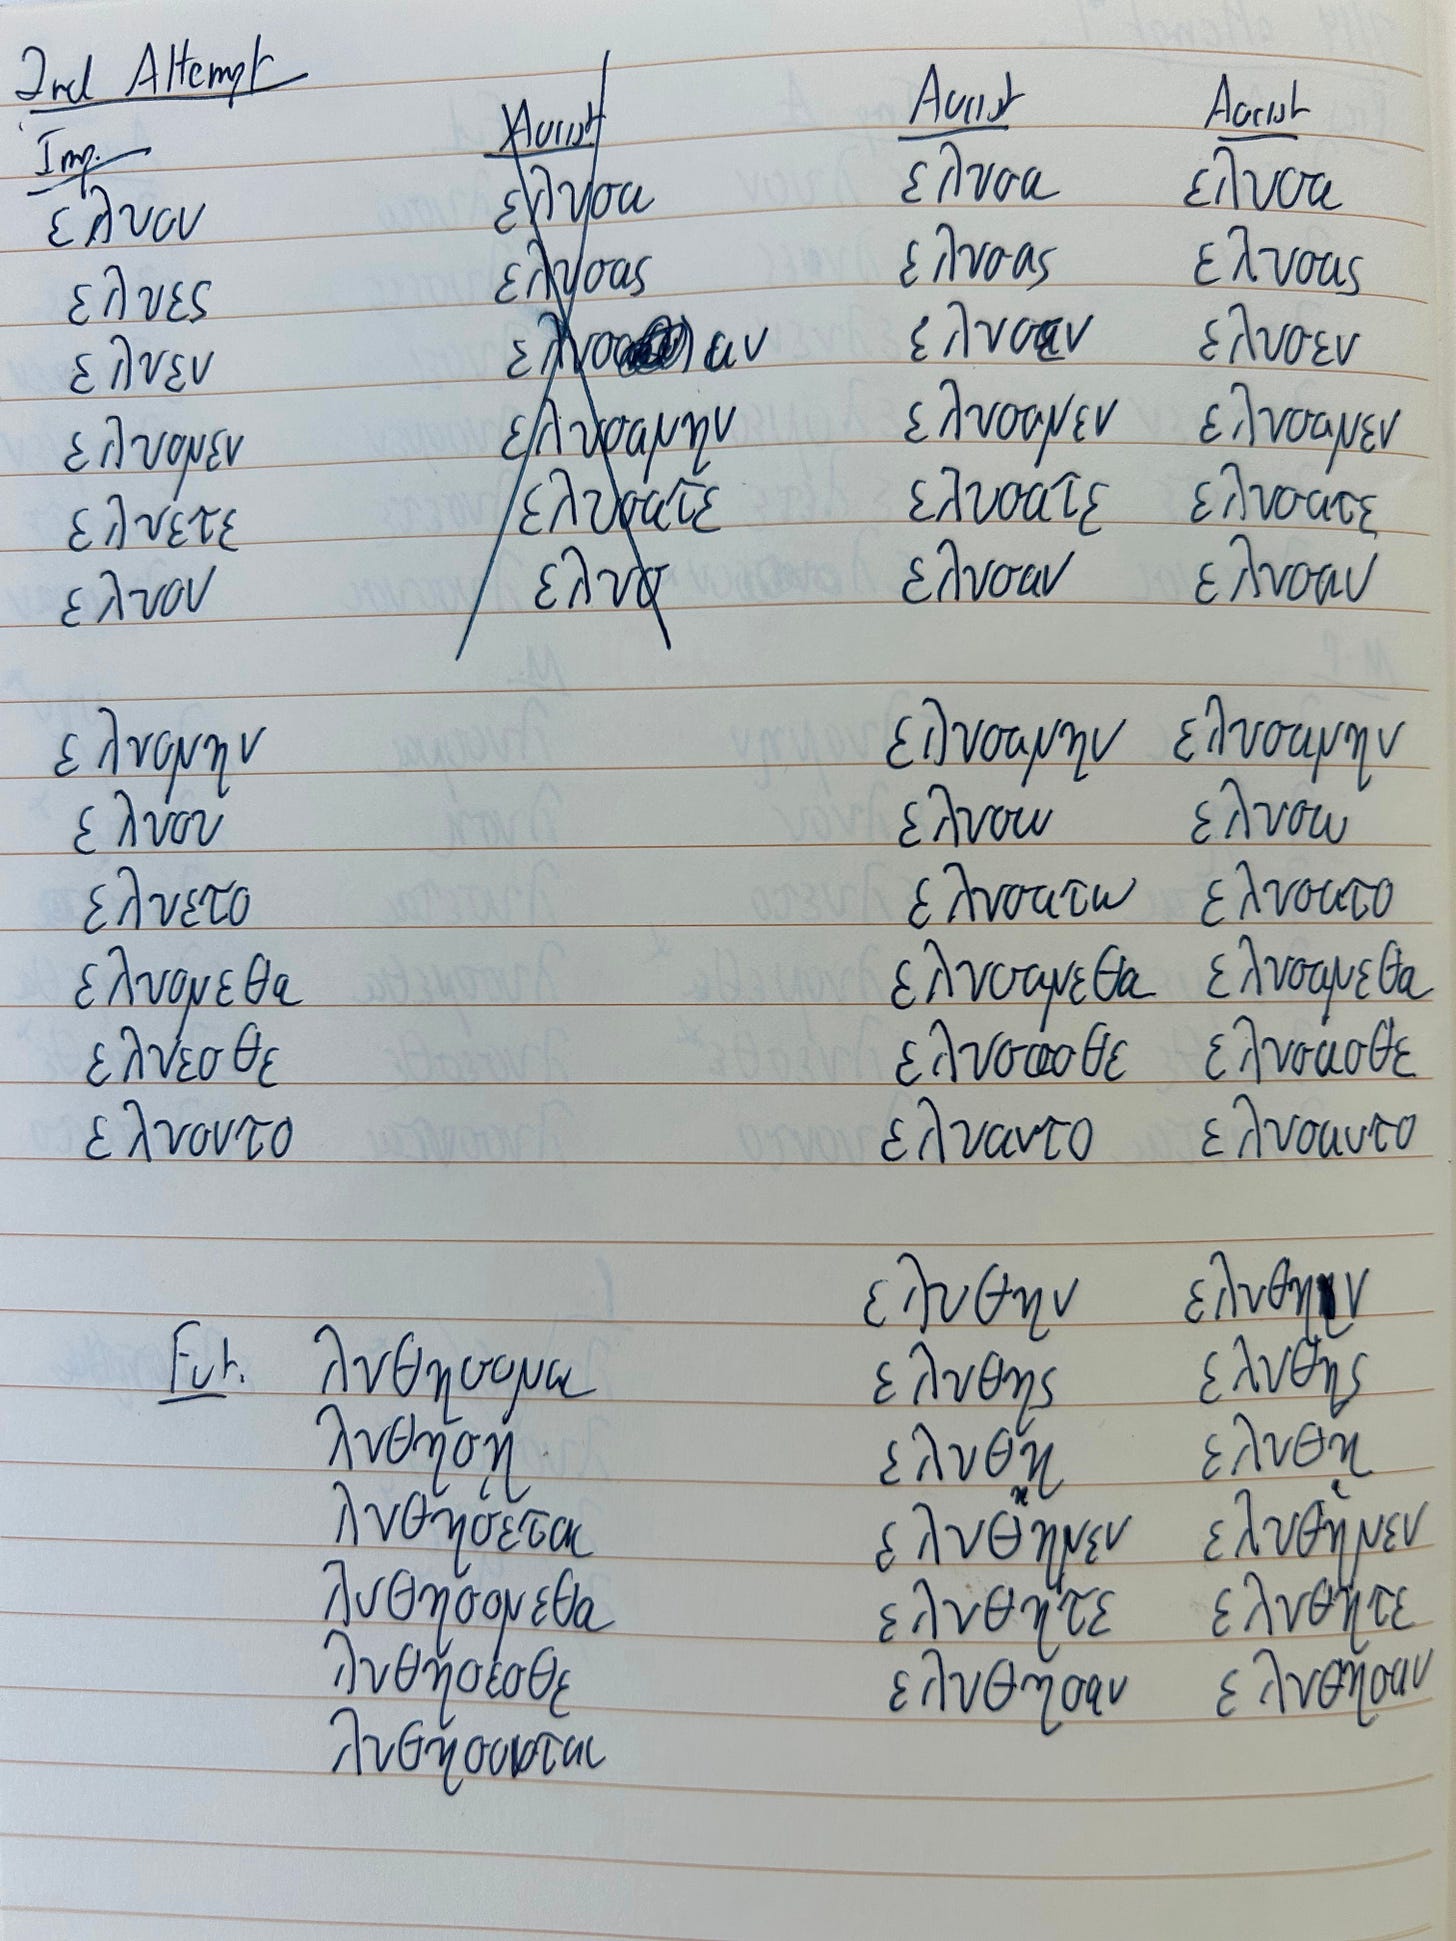 2nd Attempt
Imp. Aorist Aorist Aorist
ελυον ελυσα ελυσα ελυσα
ελυες ελυσας ελυσας ελυσας
ελυεν ελυσ αν ελυσεν ελυσεν
ελυομεν ελυσαμην ελυσαμεν ελυσαμεν
ελυετε ελυσατε ελυσατε ελυσατε
ελυον ελυσ ελυσαν ελυσαν
ελυομην ελυσαμην ελυσαμην
ελυου ελυσω ελυσω
ελυετο ελυσατω ελυσατο
ελυομεθα ελυσαμεθα ελυσαμεθα
ελυεσθε ελυσασθε ελυσασθε
ελυοντο ελυαντο ελυσαντο
ελυθην ελυθην
Fut. λυθησομαι ελυθης ελυθης
λυθησῃ ελυθη ελυθη
λυθησεται ελυθημεν ελυθημεν
λυθησομεθα ελυθητε ελυθητε
λυθησεσθε ελυθησαν ελυθησαν
λυθησονται